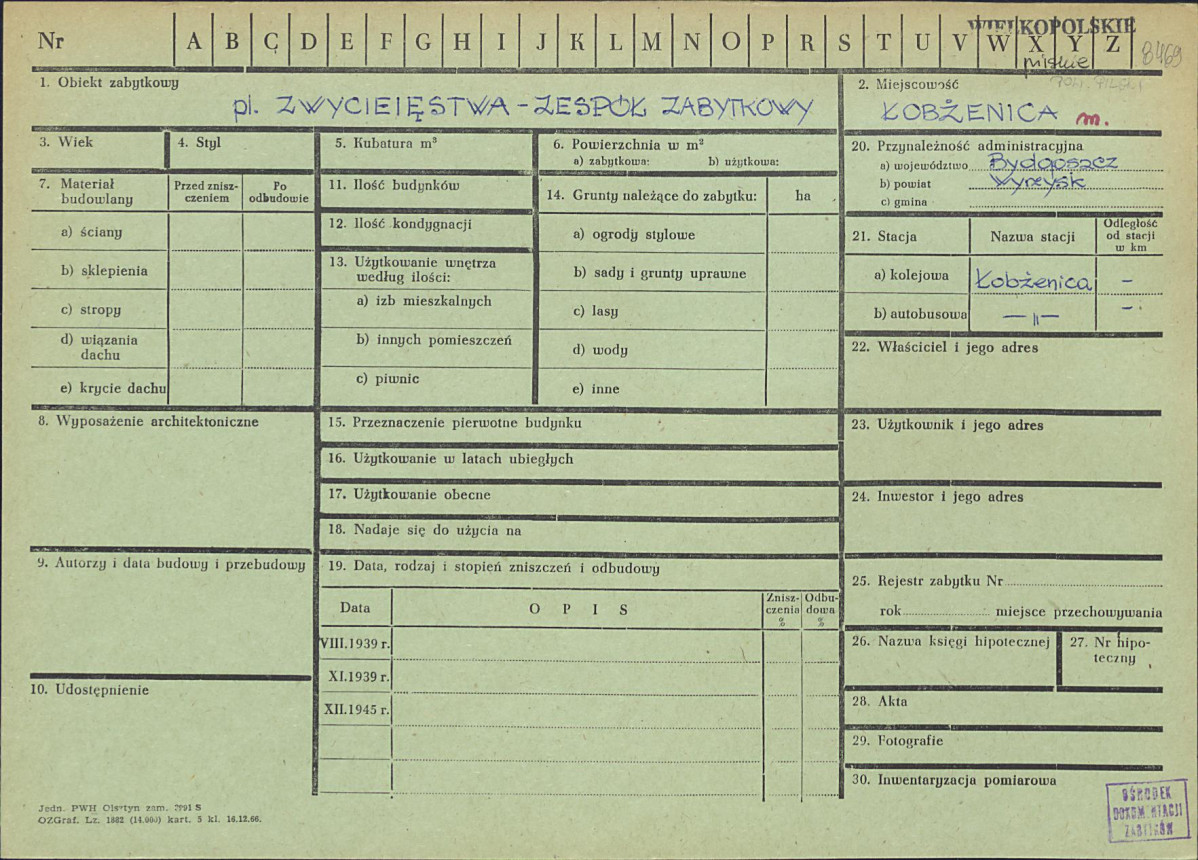 WIELKOPOLSKIE
Nr A B C D E F G H I J K L M N O P R S T U V W X Y Z
8469
pilskie
1. Obiekt zabytkowy
pl. ZWYCIEIĘSTWA - ZESPÓŁ ZABYTKOWY
2. Miejscowość
ŁOBŻENICA m.
3. Wiek
4. Styl
5. Kubatura m³
6. Powierzchnia w m²
a) zabytkowa: b) użytkowa:
20. Przynależność administracyjna
a) województwo Bydgoszcz
b) powiat Wyrzysk
c) gmina
7. Materiał budowlany
Przed znisz-
czeniem
Po
odbudowie
a) ściany
b) sklepienia
c) stropy
d) wiązania
dachu
e) krycie dachu
11. Ilość budynków
12. Ilość kondygnacji
13. Użytkowanie wnętrza
według ilości:
a) izb mieszkalnych
b) innych pomieszczeń
c) piwnic
14. Grunty należące do zabytku: ha
a) ogrody stylowe
b) sady i grunty uprawne
c) lasy
d) wody
e) inne
21. Stacja Nazwa stacji
Odległość
od stacji
w km
a) kolejowa Łobżenica –
b) autobusowa — " — –
22. Właściciel i jego adres
8. Wyposażenie architektoniczne
15. Przeznaczenie pierwotne budynku
16. Użytkowanie w latach ubiegłych
17. Użytkowanie obecne
18. Nadaje się do użycia na
23. Użytkownik i jego adres
24. Inwestor i jego adres
9. Autorzy i data budowy i przebudowy
19. Data, rodzaj i stopień zniszczeń i odbudowy
Data O P I S
Znisz-
czenia
%
Odbu-
dowa
%
VIII.1939 r.
XI.1939 r.
XII.1945 r.
25. Rejestr zabytku Nr
rok miejsce przechowywania
26. Nazwa księgi hipotecznej
27. Nr hipo-
teczny
10. Udostępnienie
28. Akta
29. Fotografie
30. Inwentaryzacja pomiarowa
Jedn. PWH Olsztyn zam. 2991 S
OZGraf. Lz. 1882 (14.000) kart. 5 kl. 16.12.66.
OŚRODEK
DOKUMENTACJI
ZABYTKÓW